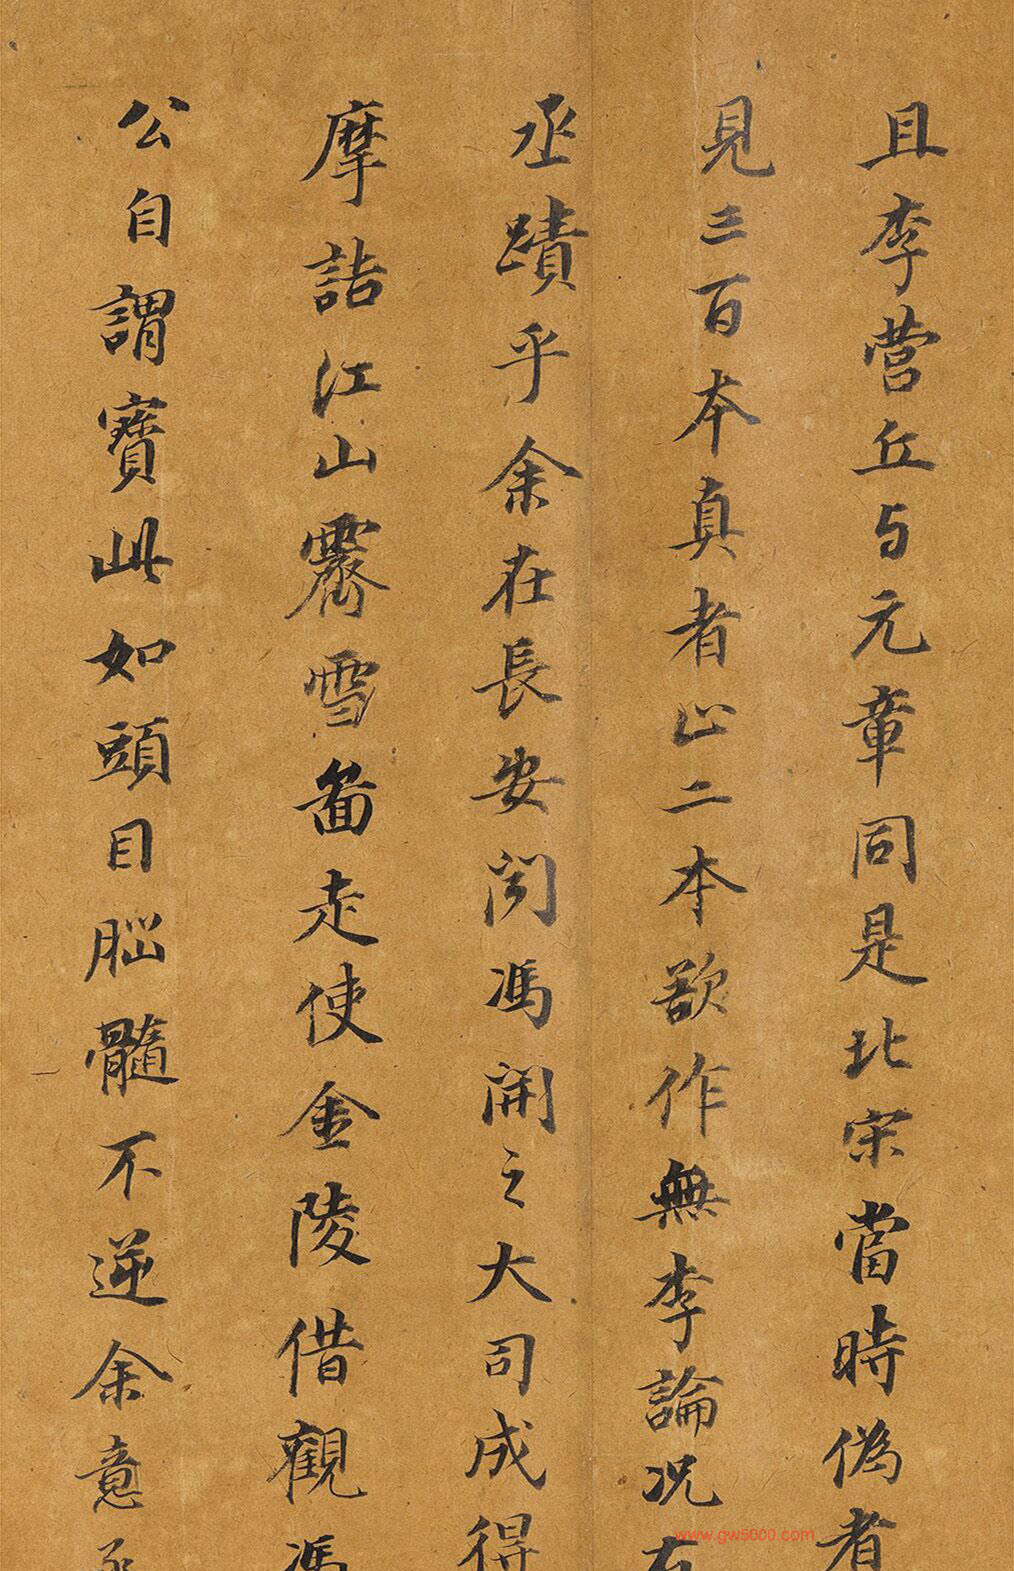 且李营丘与元章同是北宋當時偽者
見三百本真者止二本欲作無李論况右
丞蹟乎余在長安闻馮開之大司成得
摩詰江山霽雪啚走使金陵借觀馮
公自謂寶此如頭目脳髓不逆余意
www.gw5000.com